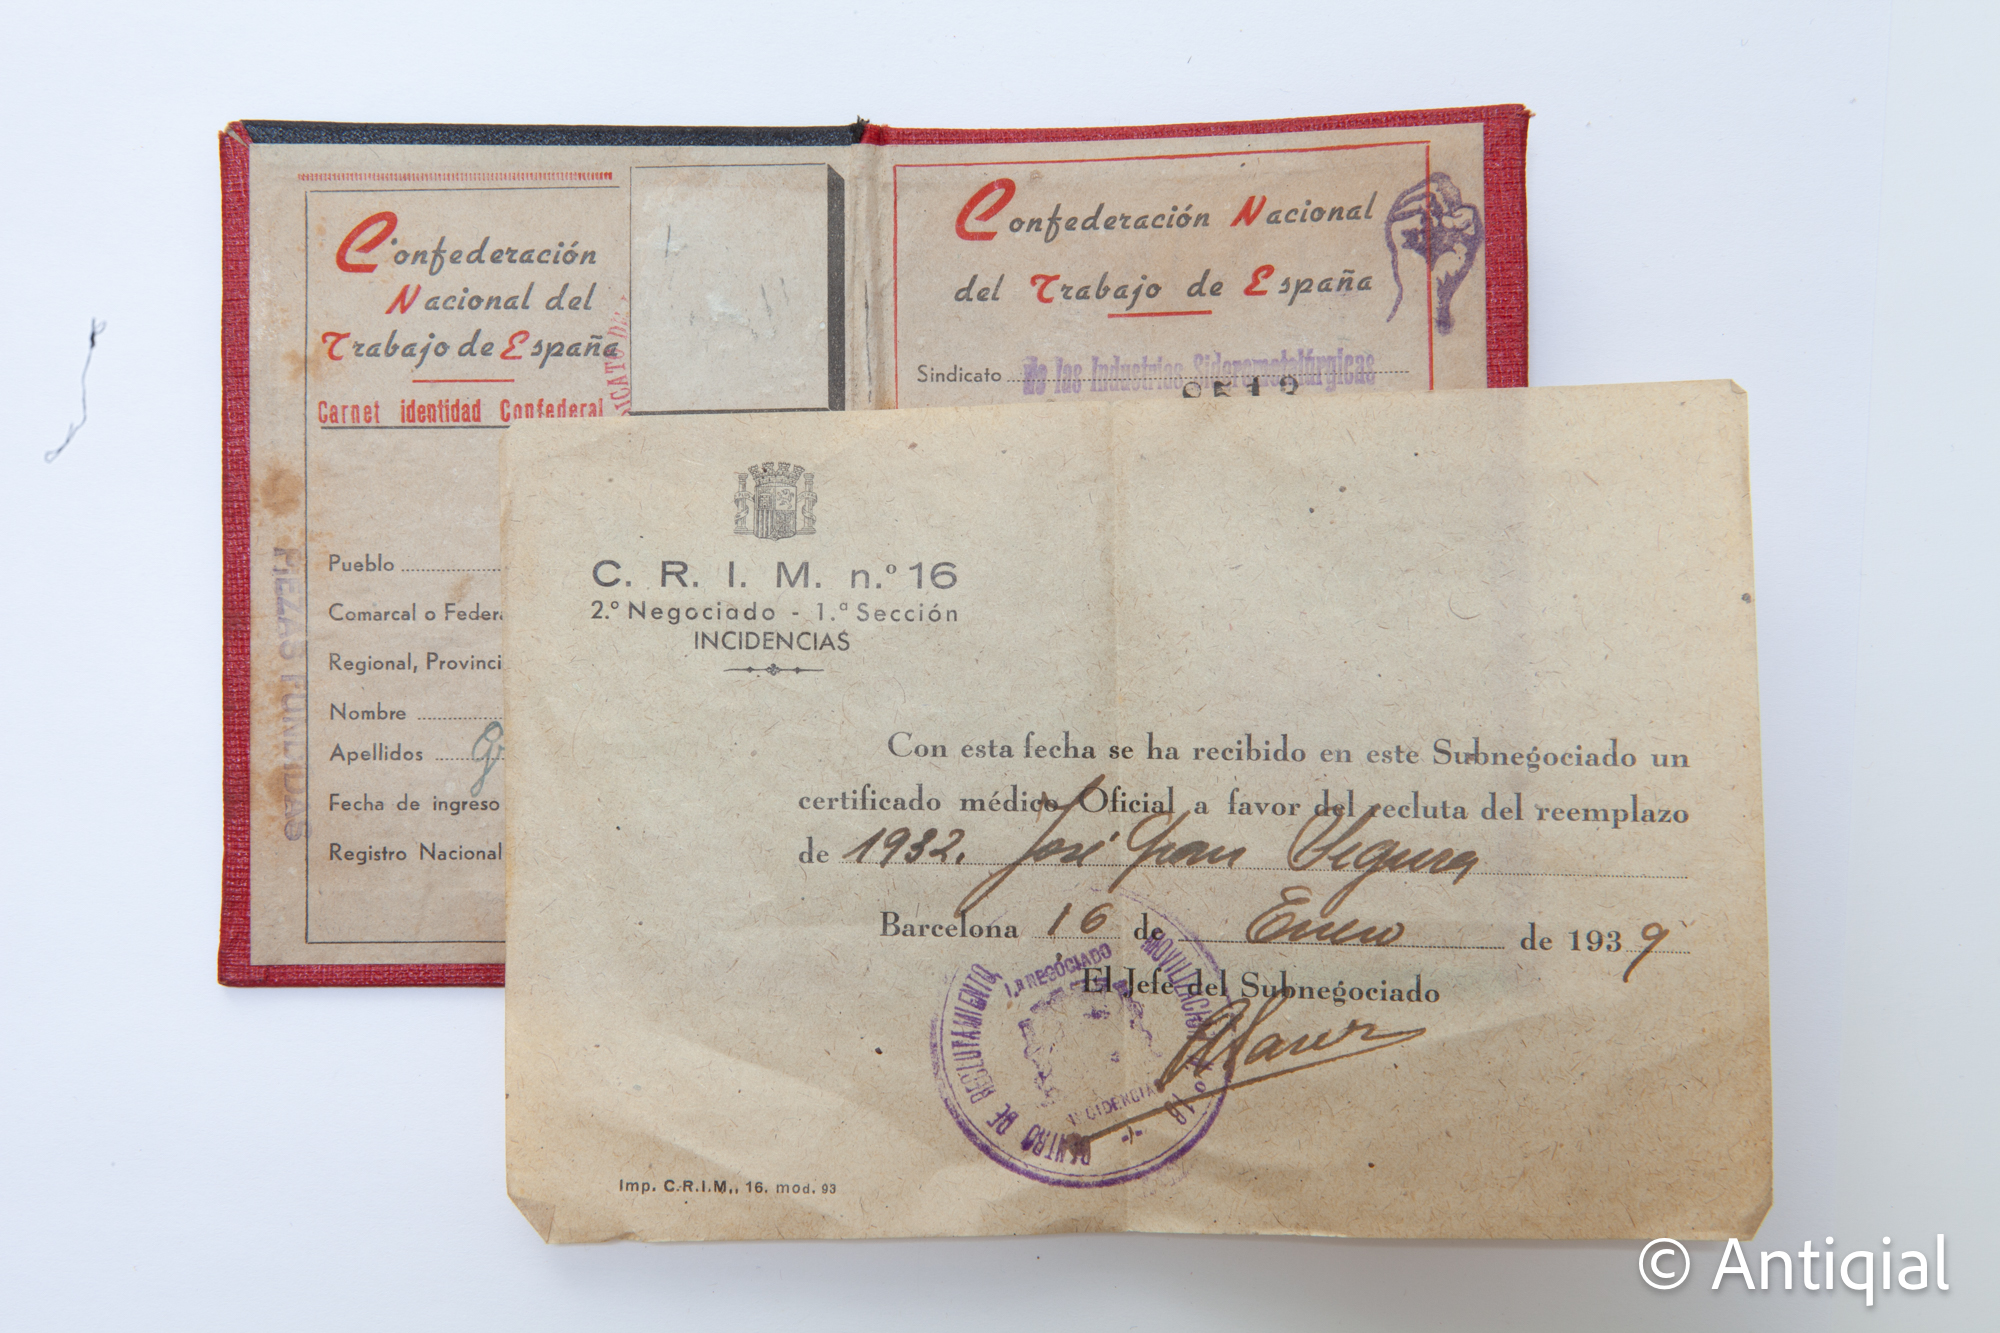 Confederación
Nacional del
Trabajo de España
Carnet identidad Confederal
Pueblo
Comarcal o Federa
Regional, Provinci
Nombre
Apellidos
Fecha de ingreso
Registro Nacional
PIEZAS FUNDIDAS
Confederación Nacional
del Trabajo de España
Sindicato de las Industrias Siderometalúrgicas
C. R. I. M. n.º 16
2.º Negociado - 1.ª Sección
INCIDENCIAS
Con esta fecha se ha recibido en este Subnegociado un
certificado médico Oficial a favor del recluta del reemplazo
de 1932. José Grau Segura
Barcelona 16 de Enero de 1939
El Jefe del Subnegociado
CENTRO DE RECLUTAMIENTO MOVILIZACION No 16
1.ª NEGOCIADO
INCIDENCIAS
Imp. C.R.I.M., 16. mod. 93
© Antiqial